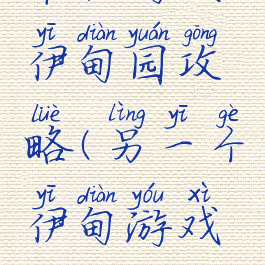 yī diàn yuán gōng
伊甸园攻
lüè lìng yī gè
略(另一个
yī diàn yóu xì
伊甸游戏